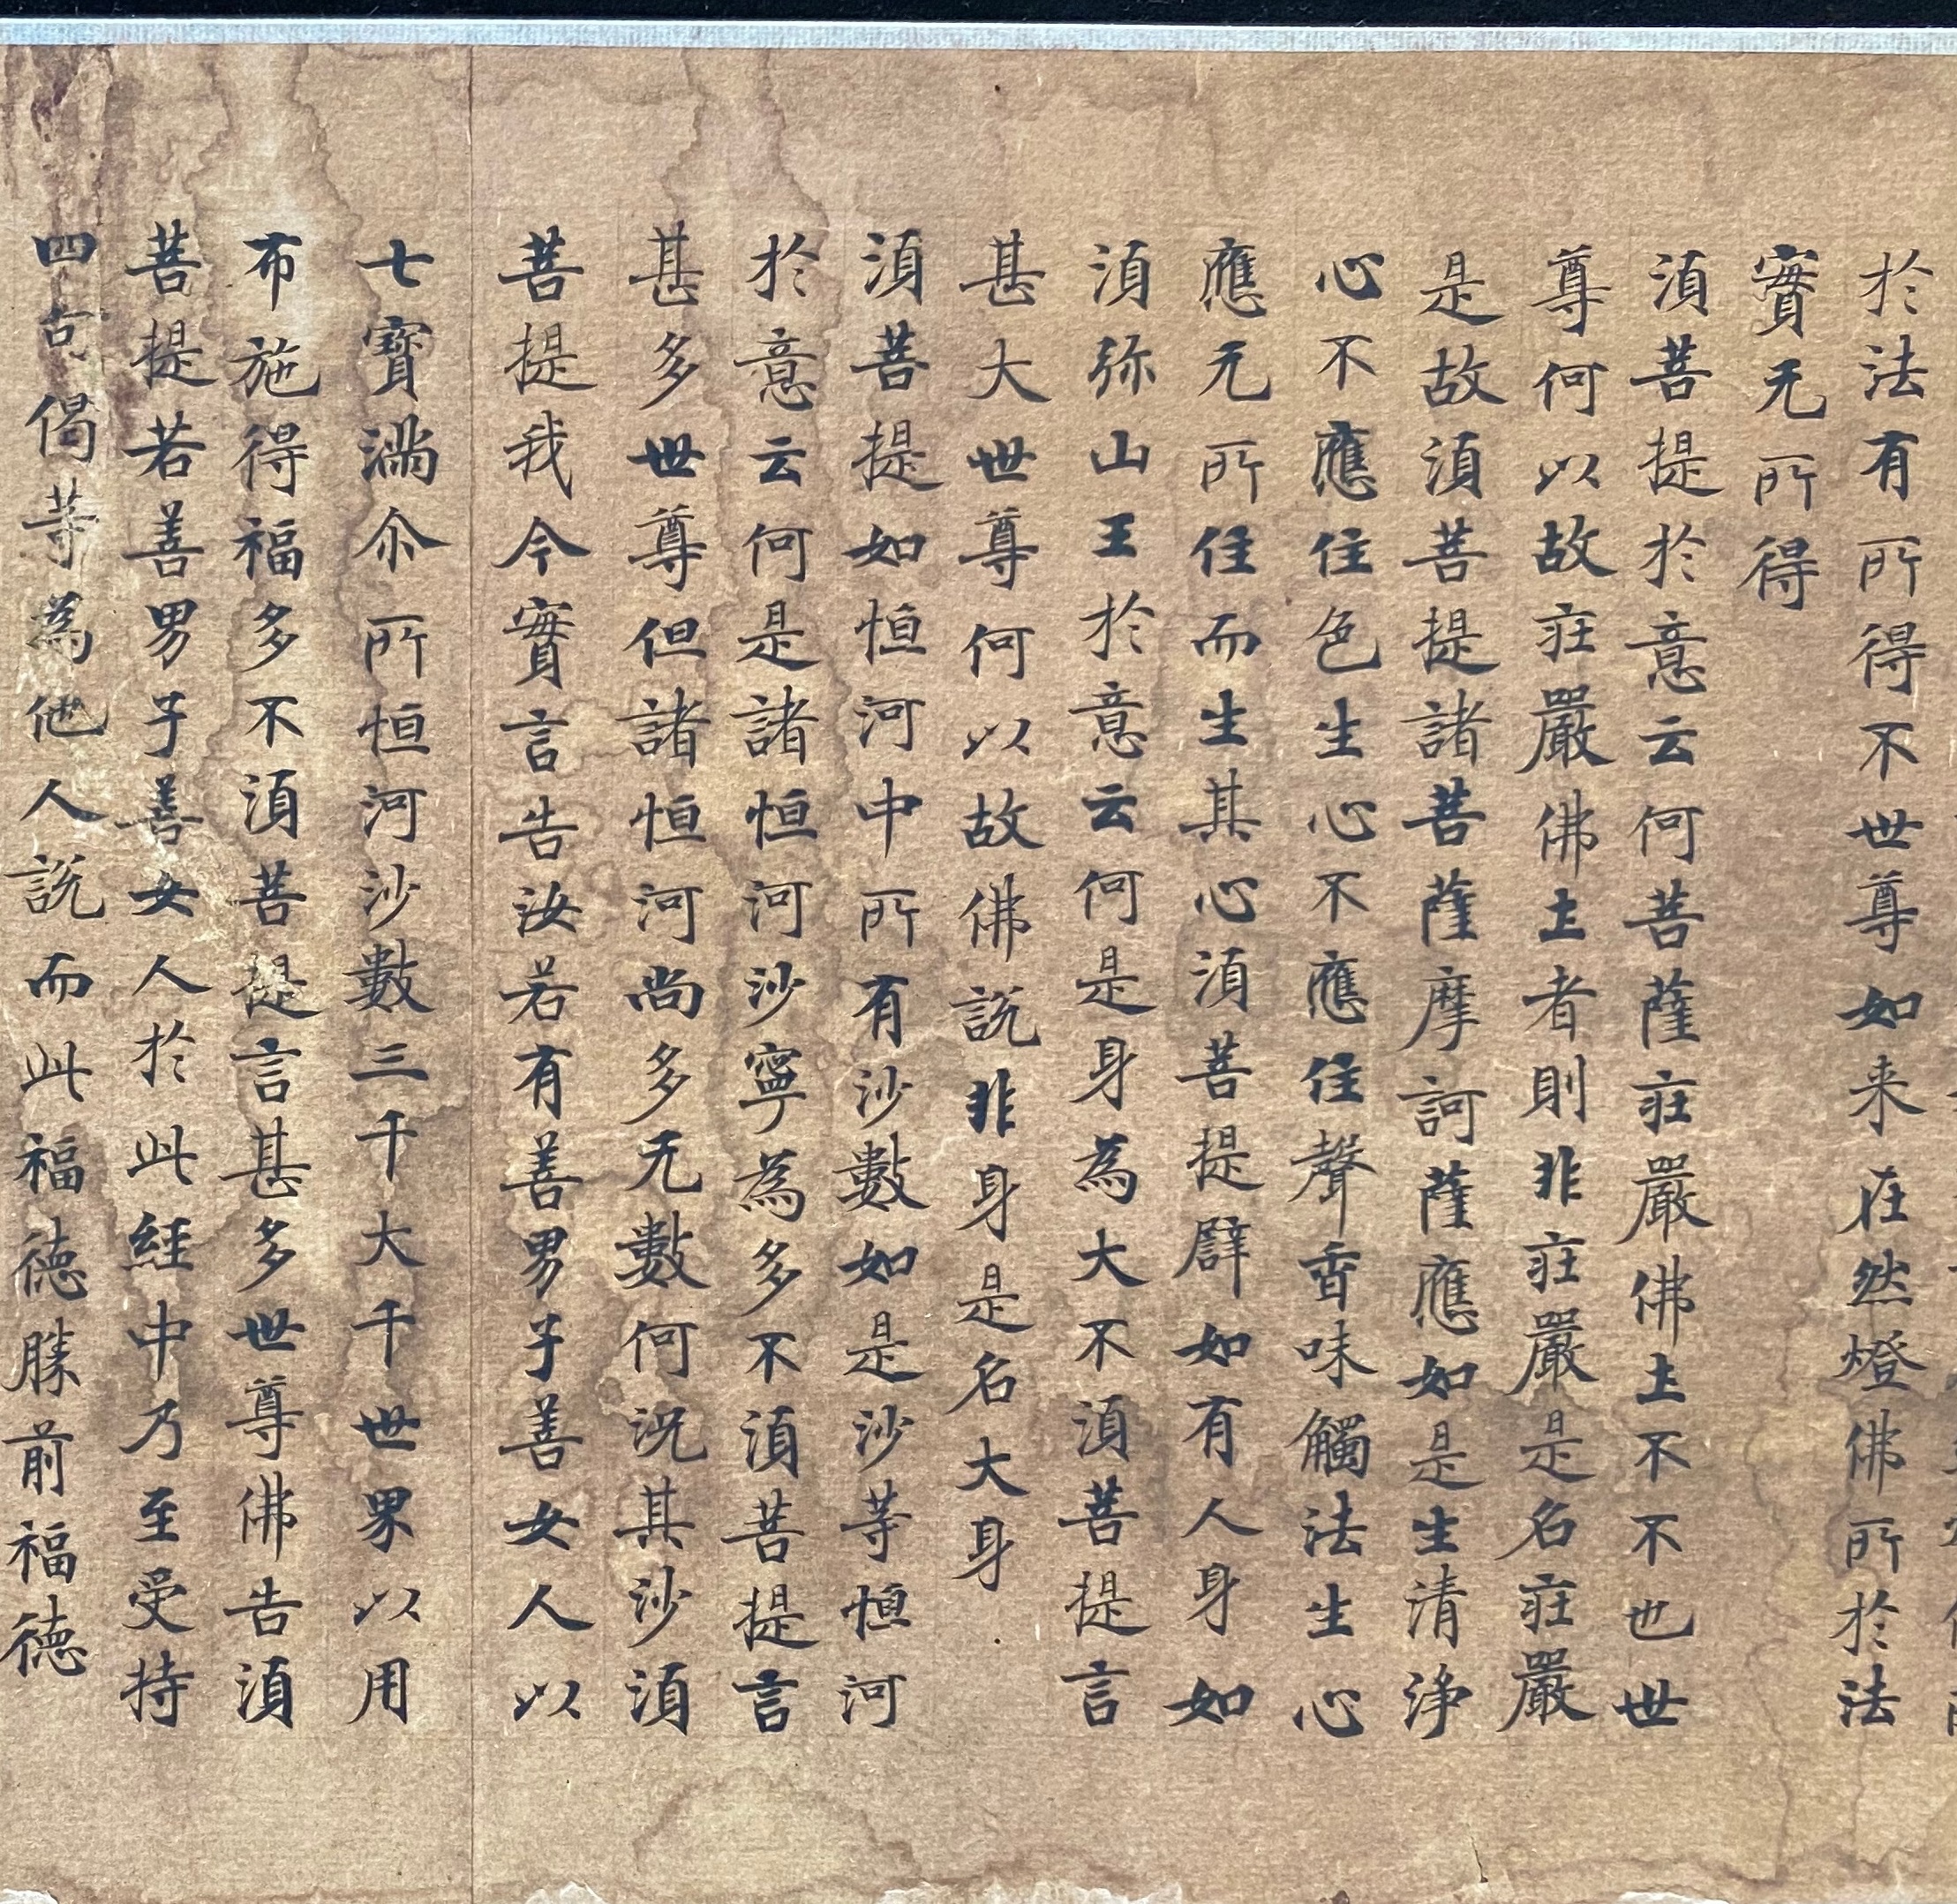 於法有所得不世尊如来在然燈佛所於法
實无所得
湏菩提於意云何菩薩疘嚴佛土不不也世
尊何以故疘嚴佛土者則非疘嚴是名疘嚴
是故湏菩提諸菩薩摩訶薩應如是生清淨
心不應住色生心不應住聲香味觸法生心
應无所住而生其心湏菩提譬如有人身如
湏弥山王於意云何是身為大不湏菩提言
甚大世尊何以故佛説非身是名大身
湏菩提如恒河中所有沙數如是沙等恒河
於意云何是諸恒河沙寧為多不湏菩提言
甚多世尊但諸恒河尚多无數何況其沙湏
菩提我今實言告汝若有善男子善女人以
七寶滿尒所恒河沙數三千大千世界以用
布施得福多不湏菩提言甚多世尊佛告湏
菩提若善男子善女人於此經中乃至受持
四句偈等為他人説而此福德勝前福德